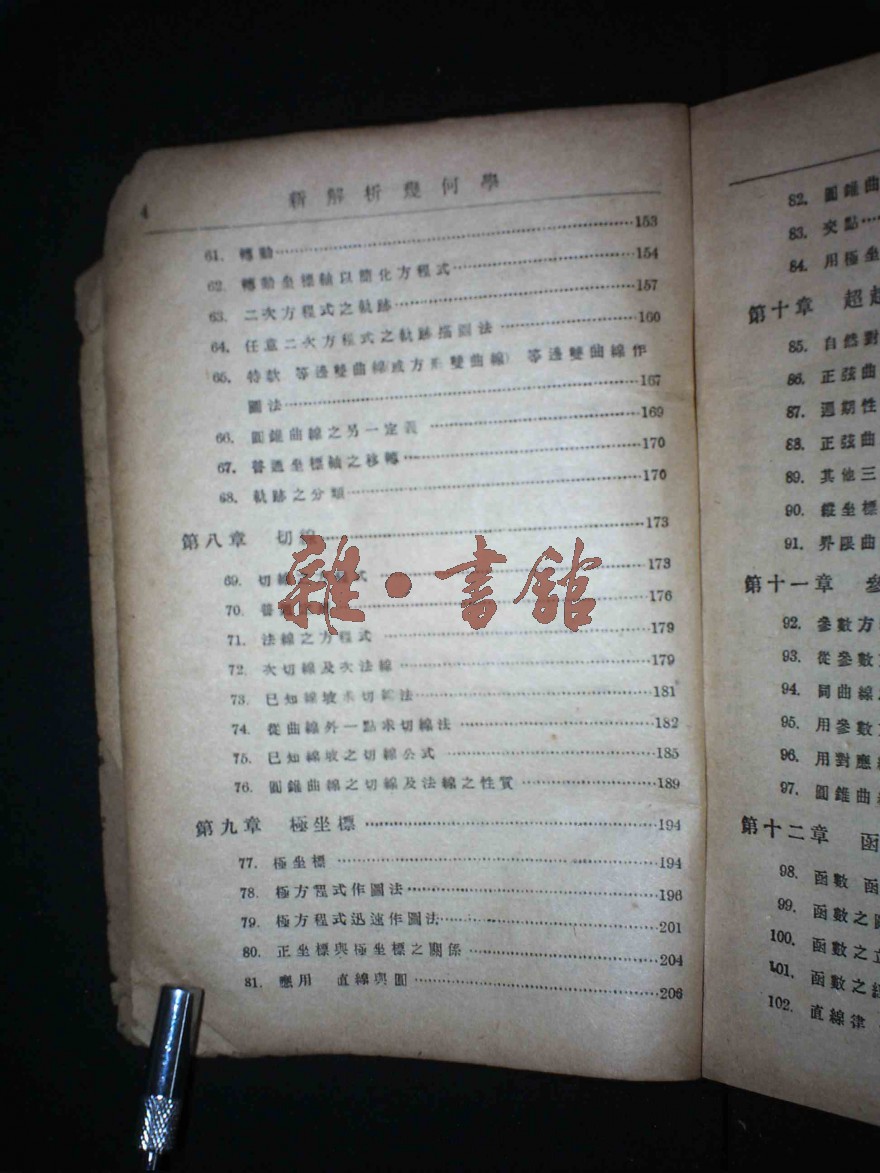 4
新解析幾何學
61. 轉動……153
62. 轉動坐標軸以簡化方程式……154
63. 二次方程式之軌跡……157
64. 任意二次方程式之軌跡描圖法……160
65. 特款 等邊雙曲線(或方形雙曲線) 等邊雙曲線作
圖法……167
66. 圓錐曲線之另一定義……169
67. 普通坐標軸之移轉……170
68. 軌跡之分類……170
第八章 切線……173
69. 切線之方程式……173
70. 普……176
71. 法線之方程式……179
72. 次切線及次法線……179
73. 已知線坡求切線法……181
74. 從曲線外一點求切線法……182
75. 已知線坡之切線公式……185
76. 圓錐曲線之切線及法線之性質……189
第九章 極坐標……194
77. 極坐標……194
78. 極方程式作圖法……196
79. 極方程式迅速作圖法……201
80. 正坐標與極坐標之關係……204
81. 應用 直線與圓……206
雜·書館
82. 圓錐曲
83. 交點……
84. 用極坐
第十章 超越
85. 自然對
86. 正弦曲
87. 週期性
88. 正弦曲
89. 其他三
90. 縱坐標
91. 界限曲
第十一章 參
92. 參數方
93. 從參數方
94. 同曲線
95. 用參數方
96. 用對應
97. 圓錐曲線
第十二章 函
98. 函數 函
99. 函數之
100. 函數之
101. 函數之
102. 直線律